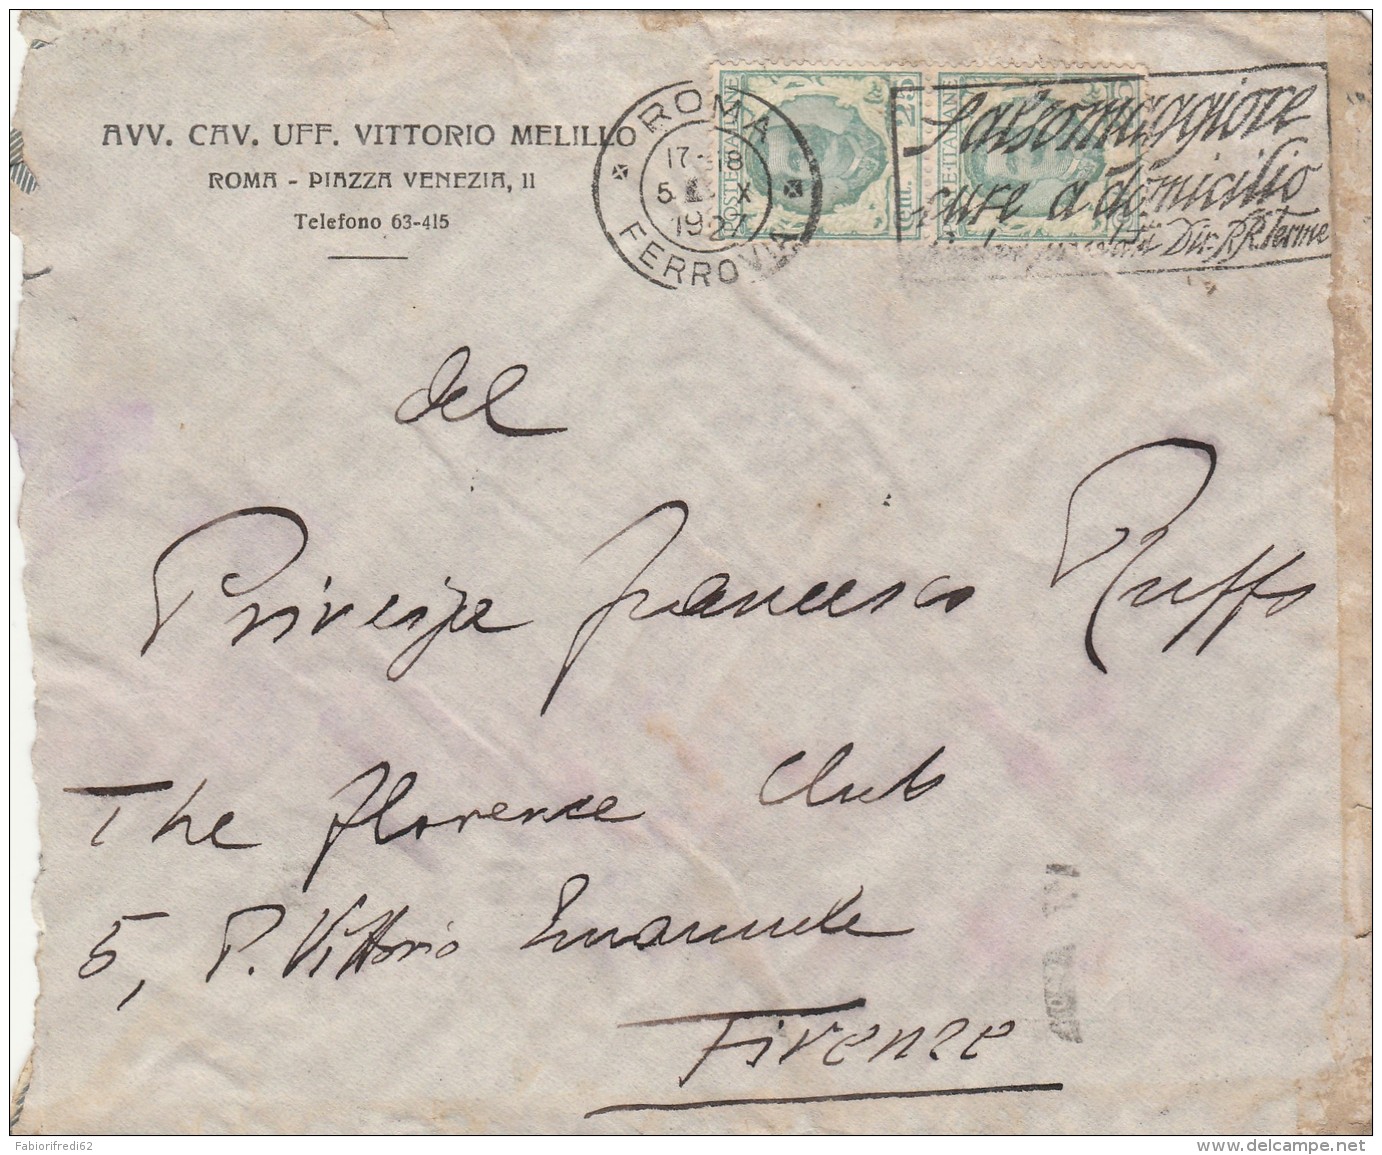 AVV. CAV. UFF. VITTORIO MELILLO
ROMA - PIAZZA VENEZIA, 11
Telefono 63-415
ROMA
17-18
5 X
1927
FERROVIA
POSTE ITALIANE
25
POSTE ITALIANE
Salsomaggiore
cure a domicilio
Dir. RR. Terme
del
Principe Francesco Ruffo
The Florence Club
5, P. Vittorio Emanuele
Firenze
Fabiorifredi62
www.delcampe.net